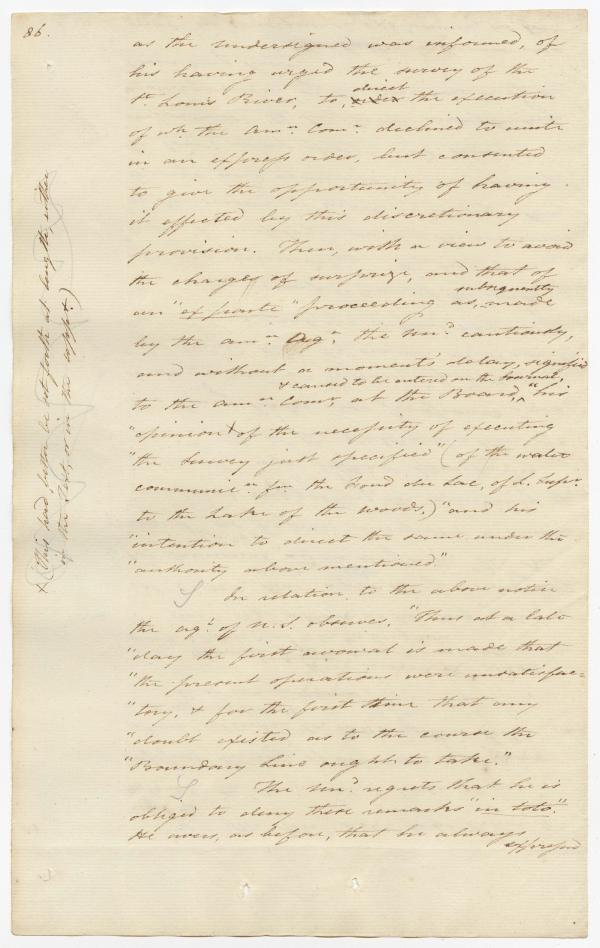 86.
as the undersigned was informed, of
his having urged the survey of the
St. Louis River, to, direct the execution
of wh. the Amn. Comr. declined to unite
in an express order, but consented
to give the opportunity of having
it effected by this discretionary
provision. Then, with a view to avoid
the charges of surprize, and that of
an "ex parte" proceeding as, subsequently made
by the Amn. Agt. the Und. cautiously,
and without a moment's delay, signified
to the Amn. Comr. at the Board, & caused to be entered on the Journal, "his
"opinion + of the necessity of executing
"the Survey just specified" (of the water
communicn. fm. the Fond du Lac, of L. Supr.
to the Lake of the Woods,) "and his
"intention to direct the same under the
"authority above mentioned."
In relation to the above notice
the agt. of U.S. observes, "Thus at a late
"day the first avowal is made that
"the present operations were unsatisfac-
"tory, & for the first time that any
"doubt existed as to the course the
"Boundary Line ought to take."
The Und. regrets that he is
obliged to deny these remarks "in toto".
He avers, as before, that he always
expressed
+ (This had better be set forth at length, either
in the text, or in the appx.)